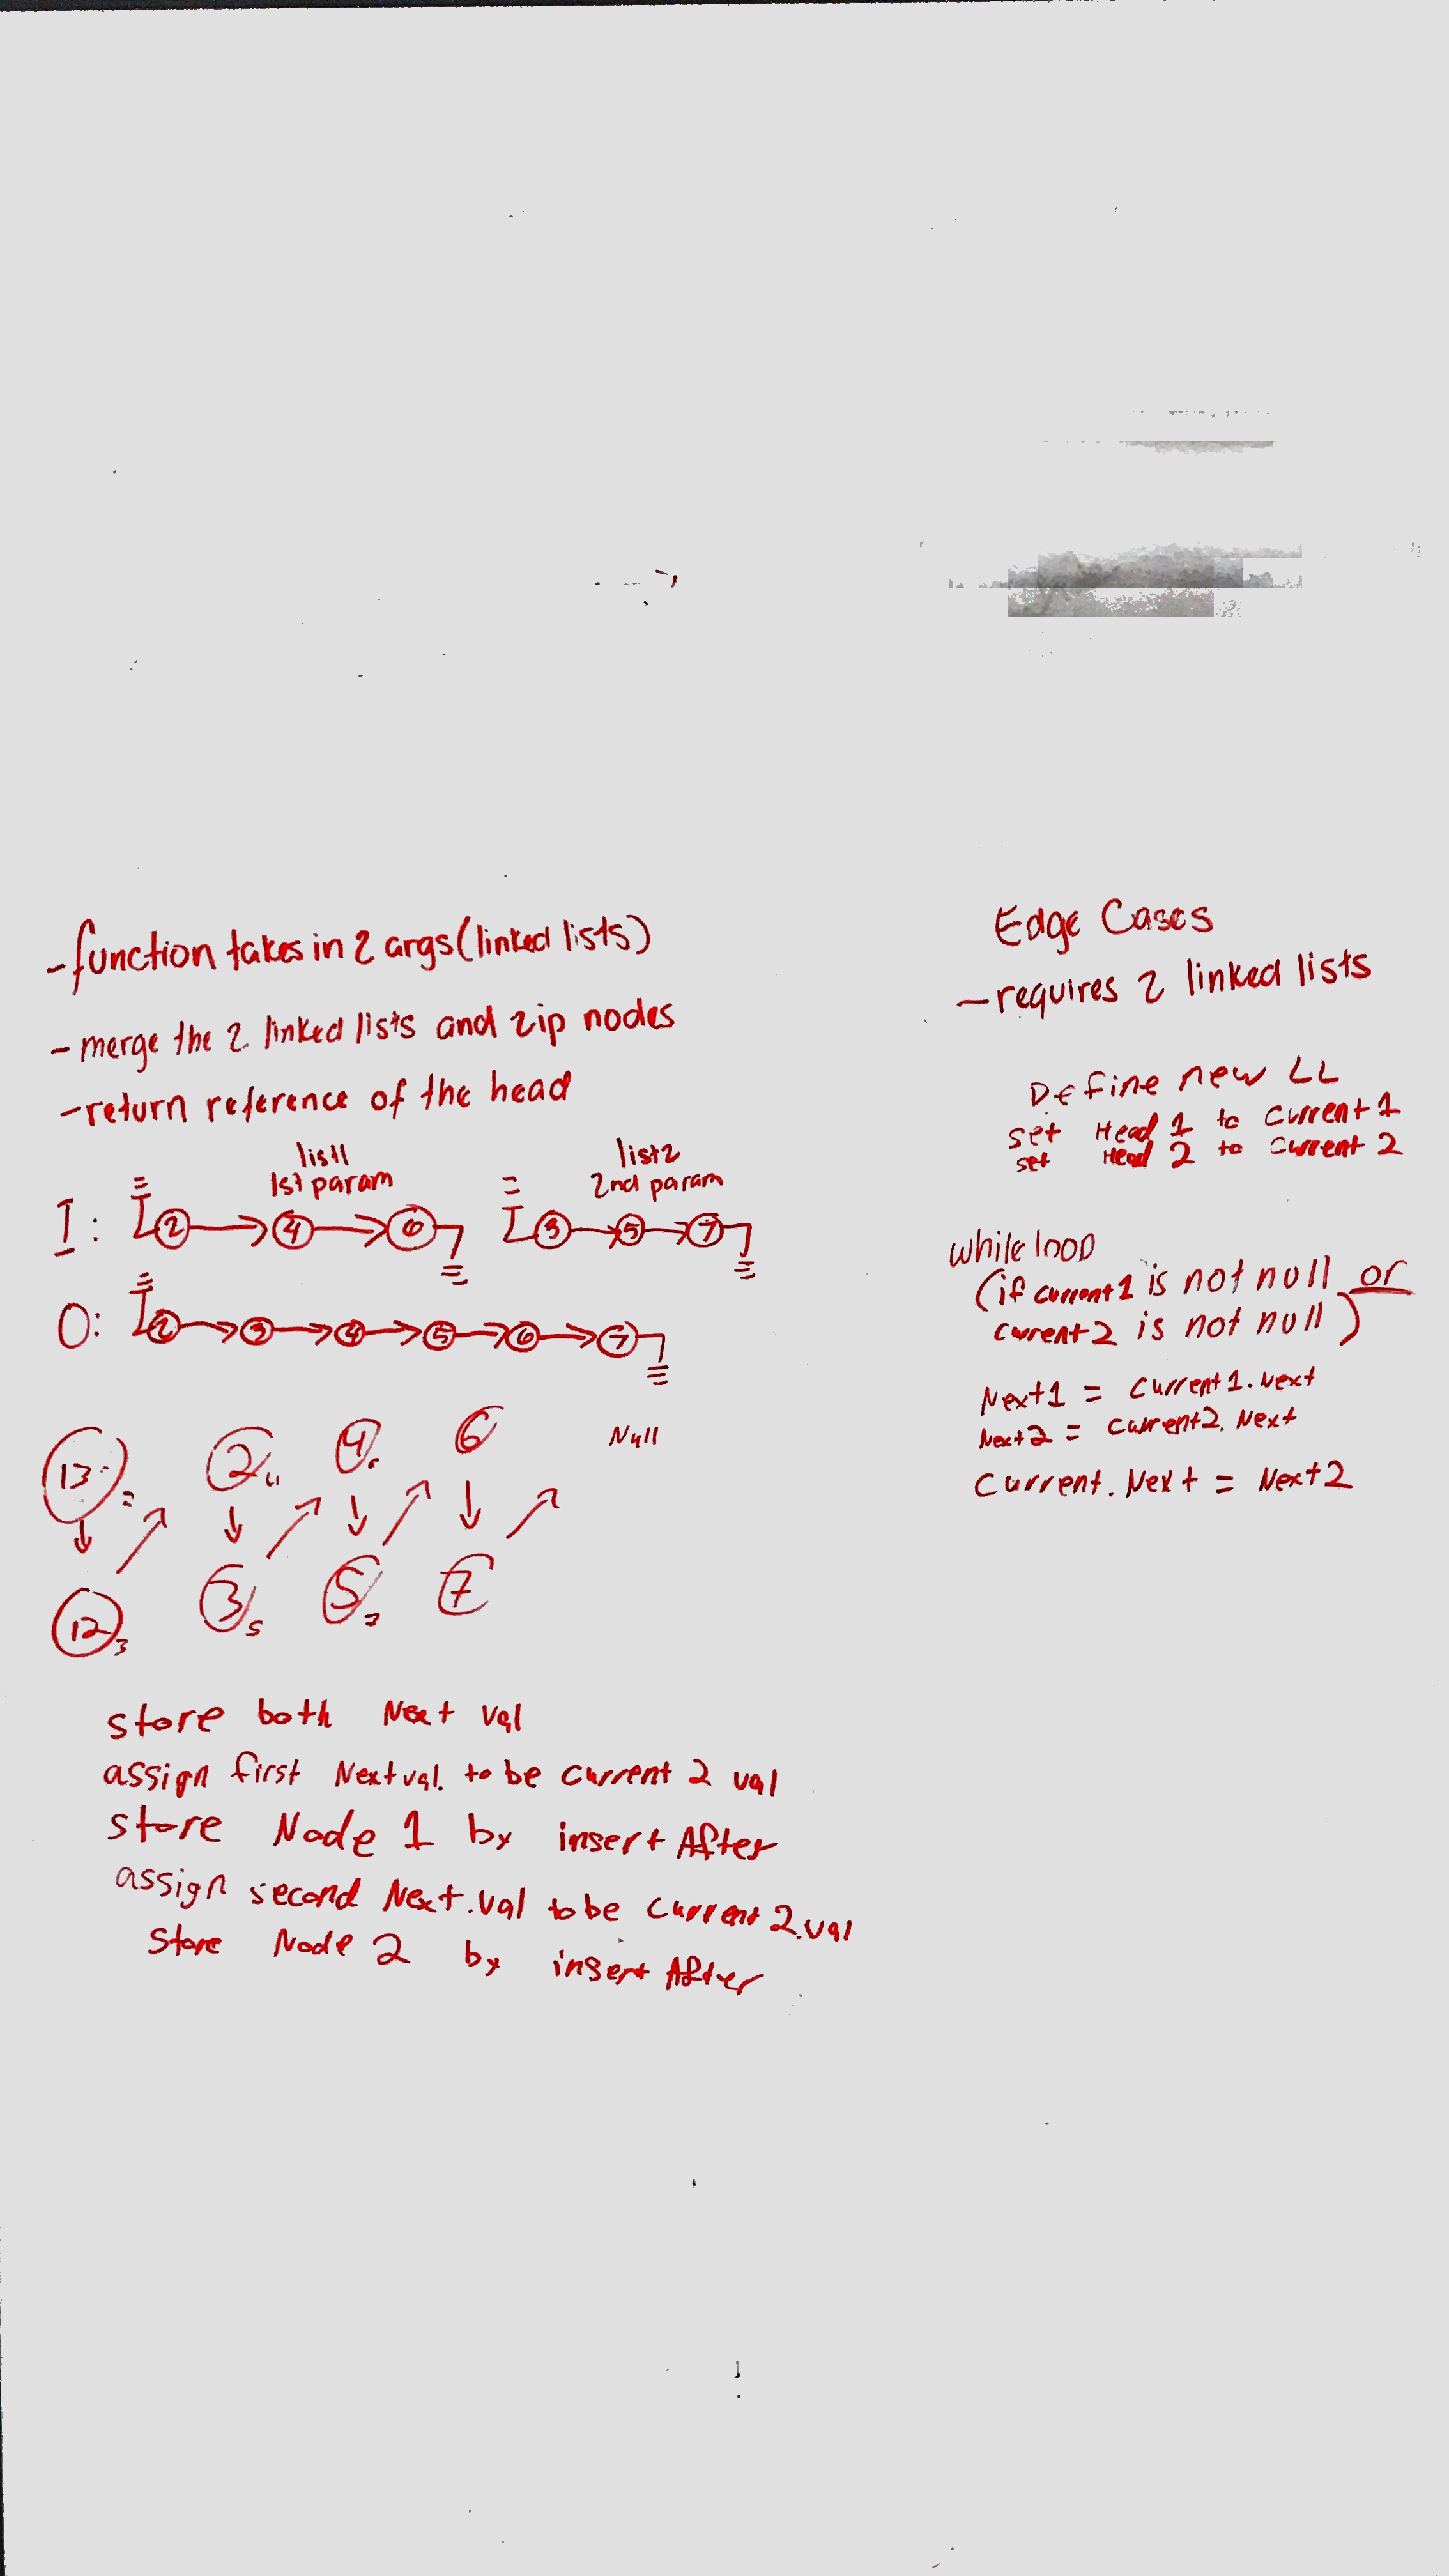 -function takes in 2 args(linked lists)
-merge the 2 linked lists and zip nodes
-return reference of the head
list1
1st param
list2
2nd param
I: 2 4 6 3 5 7
O: 2 3 4 5 6 7
13 2 4 6 Null
12 3 5 7
store both Next val
assign first Next val. to be current 2 val
store Node 1 by insert After
assign second Next.val to be current 2.val
store Node 2 by insert After
Edge Cases
-requires 2 linked lists
Define new LL
set Head 1 to current 1
set Head 2 to current 2
while loop
(if current1 is not null or
current2 is not null)
Next1 = current1.Next
Next2 = current2.Next
current.Next = Next2